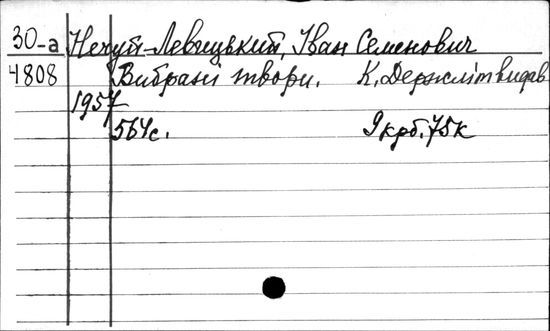 30-а Нечуй-Левицький, Іван Семенович
4808 Вибрані твори. К, Держлітвидав
1957
564с. 9 крб. 75к